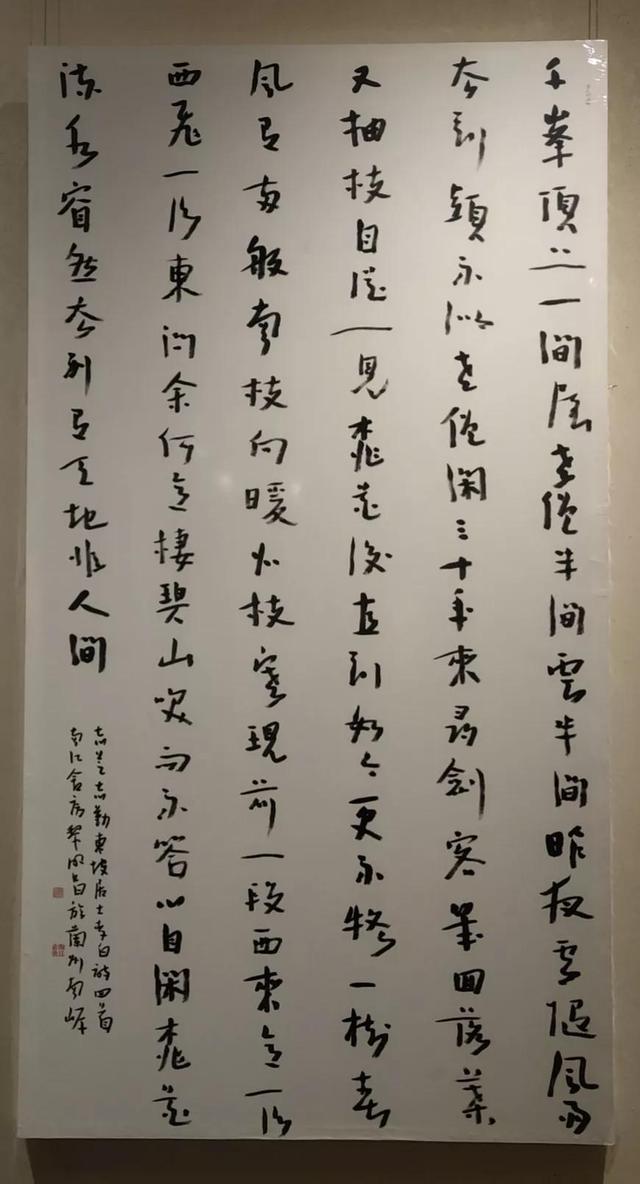 千峯頂上一間屋老僧半間雲半間昨夜雲隨風雨
去到頭不似老僧閑三十年來尋劍客幾回落葉
又抽枝自從一見桃花後直到如今更不疑一樹春
風有兩般南枝向暖北枝寒現前一段西來意一片
西飛一片東問余何意棲碧山笑而不答心自閑桃花
流水窅然去別有天地非人間
志芝志勤東坡居士李白詩四首
於蘭州南